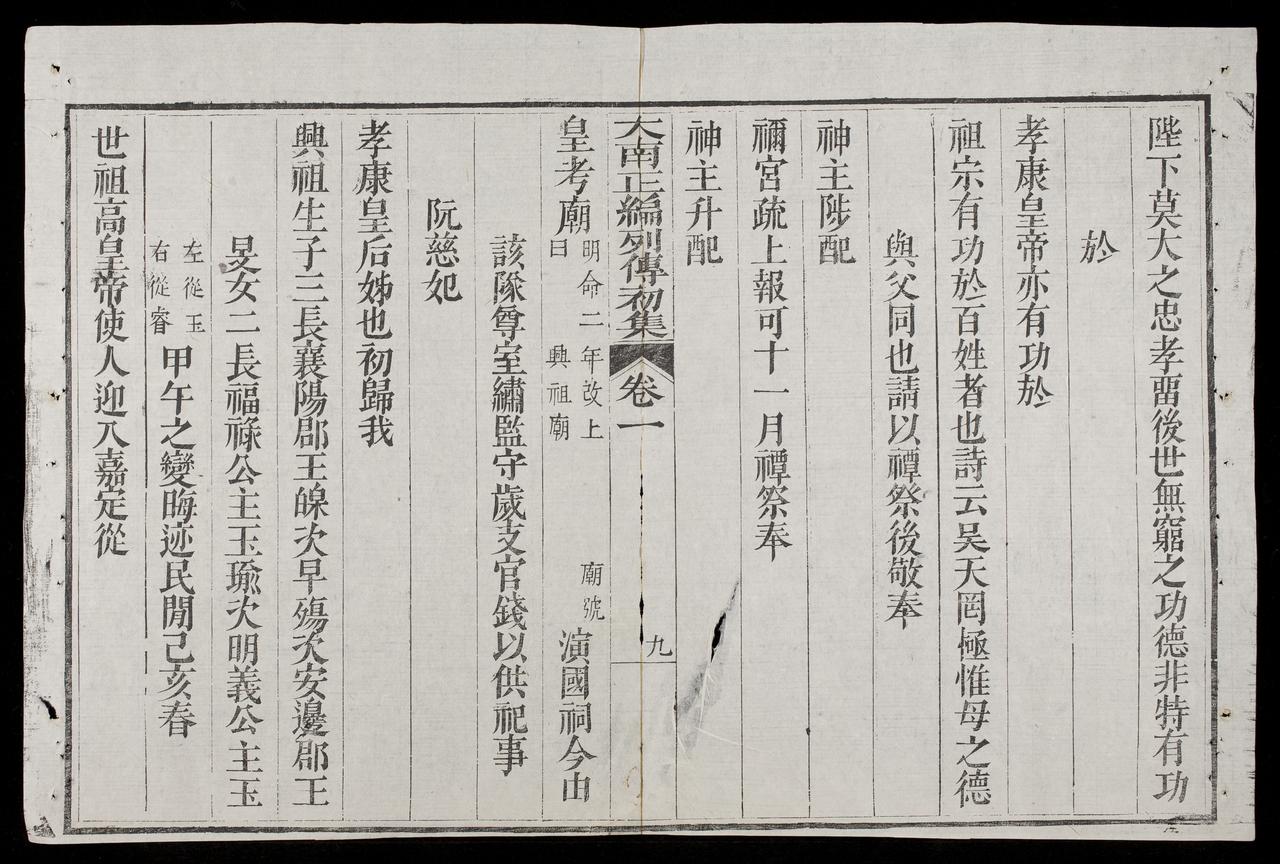 陛下莫大之忠孝畱後世無窮之功德非特有功
於
孝康皇帝亦有功於
祖宗有功於百姓者也詩云昊天罔極惟母之德
與父同也請以禫祭後敬奉
神主陟配
禰宮疏上報可十一月禫祭奉
神主升配
大南正編列傳初集 卷一 九
皇考廟明命二年改上廟號曰興祖廟演國祠今由
該隊尊室繡監守歲支官錢以供祀事
阮慈妃
孝康皇后姊也初歸我
興祖生子三長襄陽郡王㬶次早殤次安邊郡王
旻女二長福祿公主玉瑜次明義公主玉
左從玉右從睿甲午之變晦迹民閒己亥春
世祖高皇帝使人迎入嘉定從